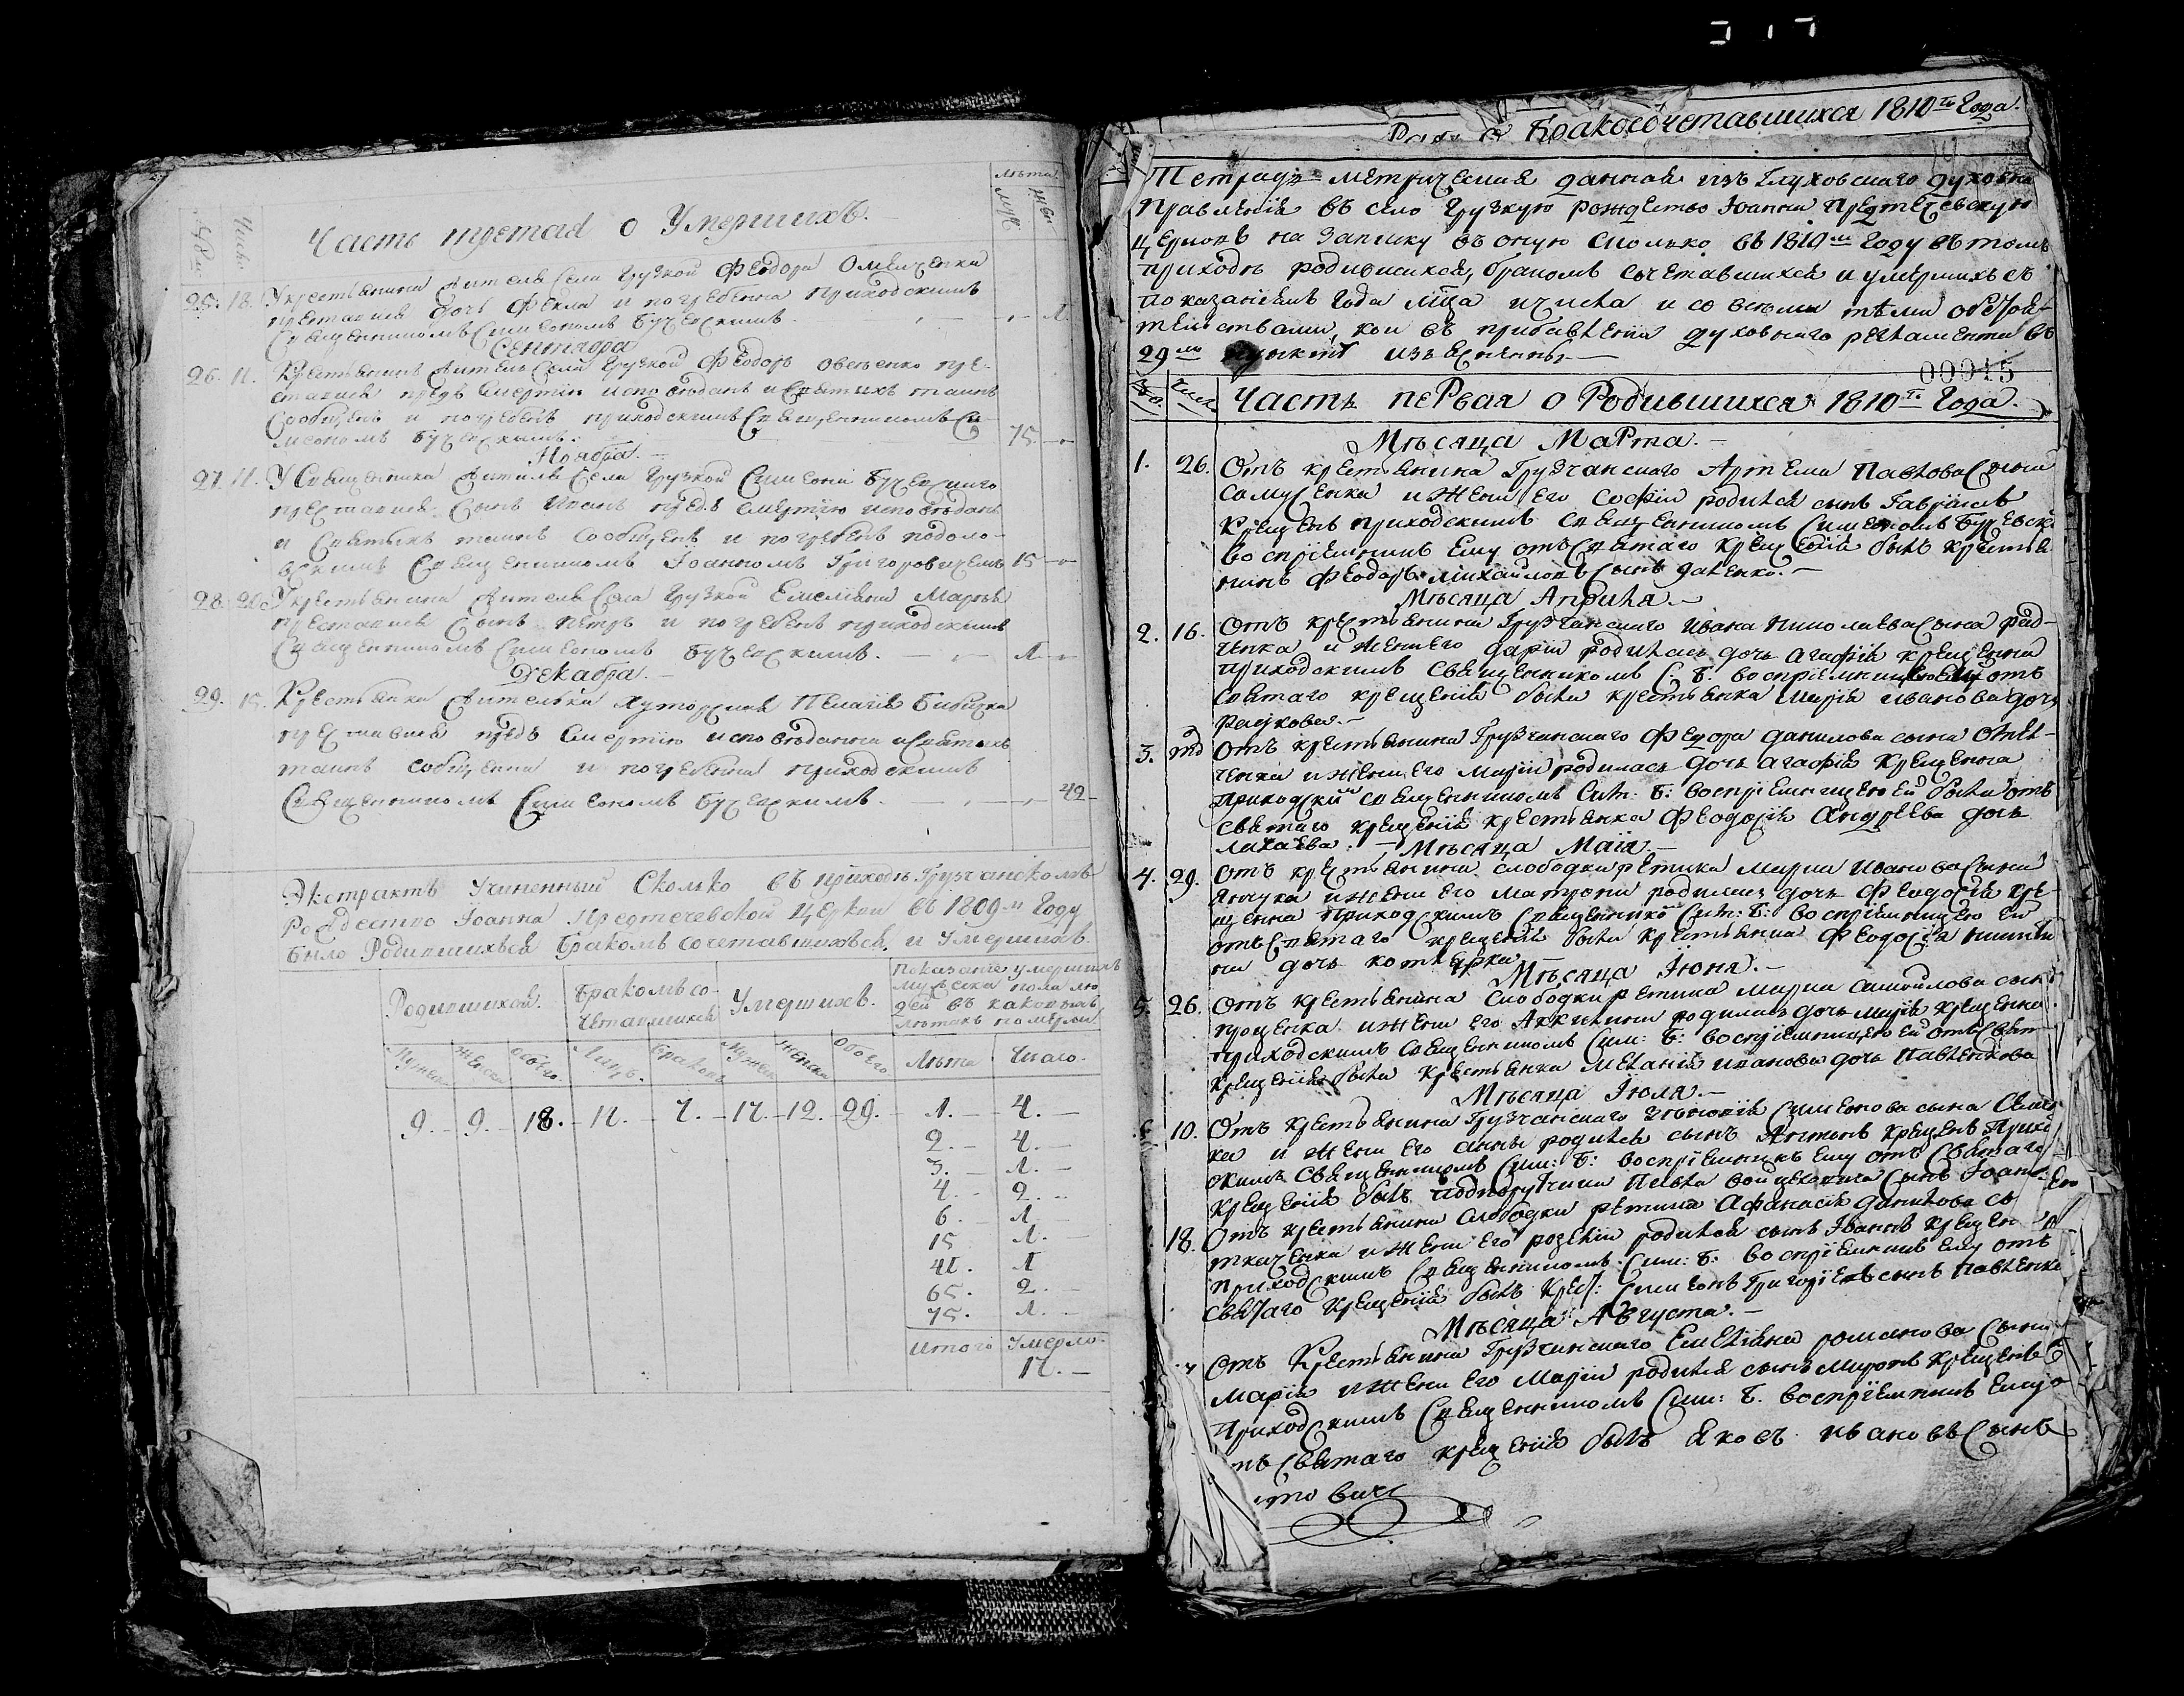 Часть третая о Умершихъ.
Число
лѣта
муж
жен
25. 18. У крестьянина жителя села Грузкой Феодора Омельченка
преставися дочь Фекла и погребенна приходскимъ
священникомъ Симеономъ Бучевскимъ. 1.
Сентября
26. 11. Крестьянинъ житель села Грузкой Феодоръ Овсѣенко пре-
ставися предъ смертію исповѣданъ и святыхъ таинъ
сообщенъ и погребенъ приходскимъ священникомъ Си-
меономъ Бучевскимъ. 75.
Ноября.
27. 11. У священника жителя села Грузкой Симеона Бучевского
преставися сынъ Иванъ предъ смертію исповѣданъ
и святыхъ таинъ сообщенъ и погребенъ подоло-
вскимъ священникомъ Іоанномъ Григоровичемъ 15
28. 20. У крестьянина жителя села Грузкой Емеліана Марія
преставися сынъ Петръ и погребенъ приходскимъ
священникомъ Симеономъ Бучевскимъ. 1.
Декабря.
29. 15. Крестьянка жителька хуторская Пелагія Бибичка
преставися предъ смертію исповѣданна и святыхъ
таинъ сообщенна и погребенна приходскимъ
священникомъ Симеономъ Бучевскимъ. 42
Экстрактъ Учиненный Сколько въ приходѣ Грузчанскомъ
Рождество Іоанна Предтечевской Церкви въ 1809м Году
было Родившихся Бракомъ сочетавшихся и Умершихъ.
Родившихся. Бракомъ со-
четавшихся Умершихъ. Показаніе умершихъ
мужеска пола лю-
дей въ какихъ
лѣтахъ померли
Мужеска Женска Обоего. Браковъ Мужеска Женска Обоего Лѣта Число.
9. 9. 18. 7. 17. 12. 29. 1. 4.
2. 4.
3. 1.
4. 2.
6. 1.
15 1.
41. 1
65. 2.
75. 1.
Итого Умерло.
17.
Бракосочетавшихся 1810го Года.
Тетрадь метрическая данная изъ Глуховскаго духовна
правленія въ село Грузкую рождество Іоанна Предтечевскую
церковь на записку въ оную сколько въ 1810м Году въ томъ
приходѣ родившихся, бракомъ сочетавшихся и умершихъ съ
показаніемъ года мца и числа и со всеми тѣми обстоя-
телствами, кои въ прибавленіи духовнаго регламента въ
29м пунктѣ изъяснены
00015
Часть пеРвая о Родившихся 1810го Года.
Мѣсяца МаРта.
1. 26. Отъ крестьянина Грузчанскаго Артема Павлова сына
Самусенка и жены его Софіи родился сынъ Гавріилъ
крещенъ приходскимъ священникомъ Симеономъ Бучевск
воспріемникъ ему отъ святаго крещенія былъ крестья
нинъ Феодоръ Михайловъ сынъ
Мѣсяца Апрѣля.
2. 16. Отъ крестьянина Грузчанскаго Ивана Николаева сына Рад-
ченка и жены его Даріи родилась дочь Агафія крещенна
приходскимъ священникомъ С. Б. воспріемницею отъ
святаго крещенія была крестьянка Марія Иванова дочь
3. тд Отъ крестьянина Грузчанскаго Федора Данилова сына Омел-
ченка и жены его Маріи родилась дочь Агафія крещенна
приходским священникомъ Сим: Б: воспріемницею ей была отъ
святаго крещенія крестьянка Феодосія Андреева дочь
Мѣсяца Маія.
4. 29. Отъ крестьянина слободки Ретика Марка Иванова сына
Янчука и жены его Матроны родилась дочь Феодосія кре-
щенна приходскимъ священнико Сим: Б: воспріемницею ей
отъ святаго крещенія была крестьянка Феодосія Никити
на дочь
Мѣсяца Іюня.
5. 26. Отъ крестьянина слободки Ретика Марка Самойлова сына
проценка и жены его Акилины родилась дочь Марія крещенна
приходскимъ священникомъ Сим: Б: воспріемницею ей отъ свят
крещенія была крестьянка Меланія Иванова дочь Павленкова
Мѣсяца Іюля.
6 10. Отъ крестьянина Грузчанскаго Симеонова сына
ка и жены его Анны родился сынъ Антонъ крещенъ прихо
скимъ священникомъ Сим: Б: воспріемникъ ему отъ святаго
крещенія былъ подпоручика Павла сынъ Іоанн
18. Отъ крестьянина слободки Ретика Афанасія Данилова сы
ткаченка и жены его родился сынъ Іоаннъ крещен
приходскимъ священникомъ Сим: Б. воспріемникъ ему отъ
святаго крещенія былъ крест: Симеонъ Григоріевъ сынъ Павленко
Мѣсяца Августа.
Отъ Крестьянина Грузчанскаго Емеліана Романова сына
Марія и жены его Маріи родился сынъ Миронъ крещенъ
приходскимъ священникомъ Сим: Б. воспріемникъ ему о
тъ святаго крещенія былъ Яковъ Ивановъ сынъ